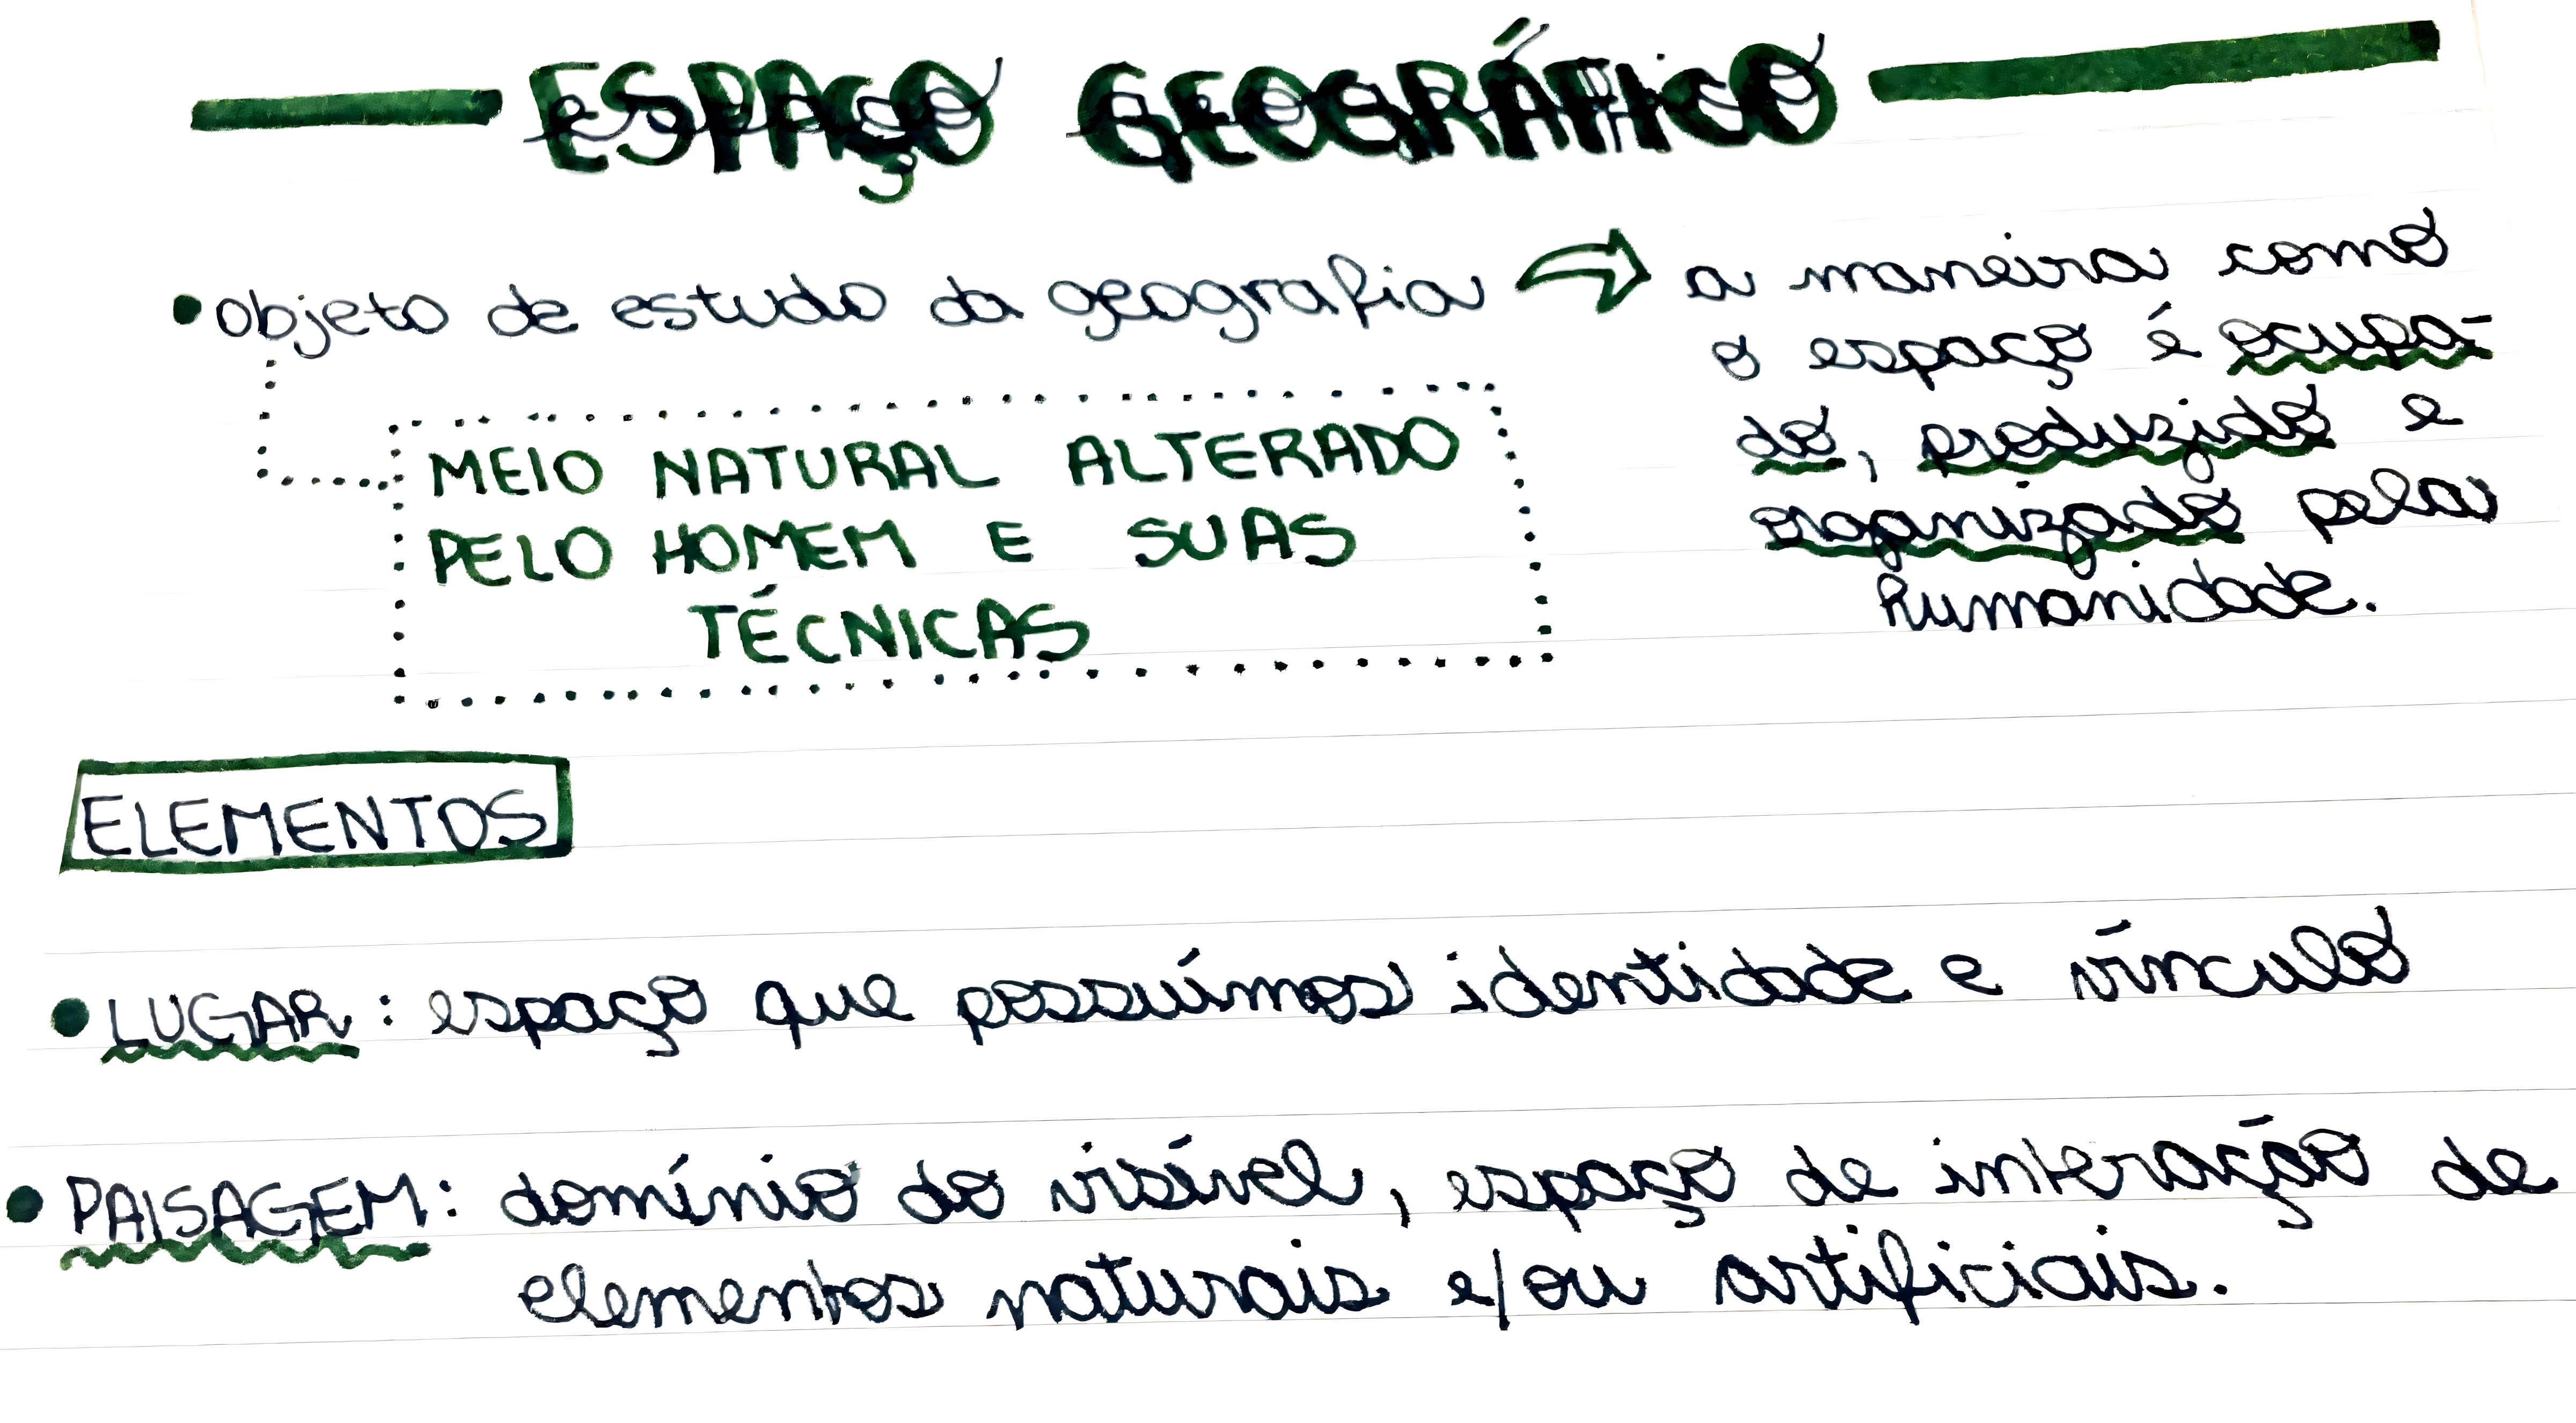 ESPAÇO GEOGRÁFICO
• objeto de estudo da geografia ⇨ a maneira como
o espaço é ocupa-
do, produzido e
organizado pela
humanidade.
MEIO NATURAL ALTERADO
PELO HOMEM E SUAS
TÉCNICAS
ELEMENTOS
• LUGAR: espaço que possuímos identidade e vínculo
• PAISAGEM: domínio do visível, espaço de interação de
elementos naturais e/ou artificiais.